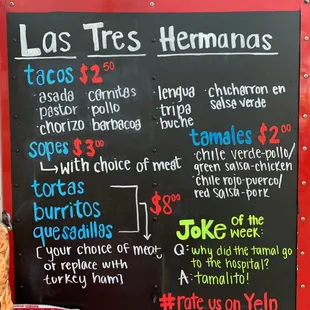 Las Tres Hermanas
tacos $2.50
asada carnitas
pastor pollo
chorizo barbacoa
lengua
tripa
buche
chicharron en
salsa verde
sopes $3.00
with choice of meat
tortas
burritos
quesadillas
$8.00
[your choice of meat,
or replace with
turkey ham]
tamales $2.00
chile verde-pollo/
green salsa-chicken
chile rojo-puerco/
red salsa-pork
JOKE of the
week:
Q: why did the tamal go
to the hospital?
A: tamalito!
#rate us on Yelp